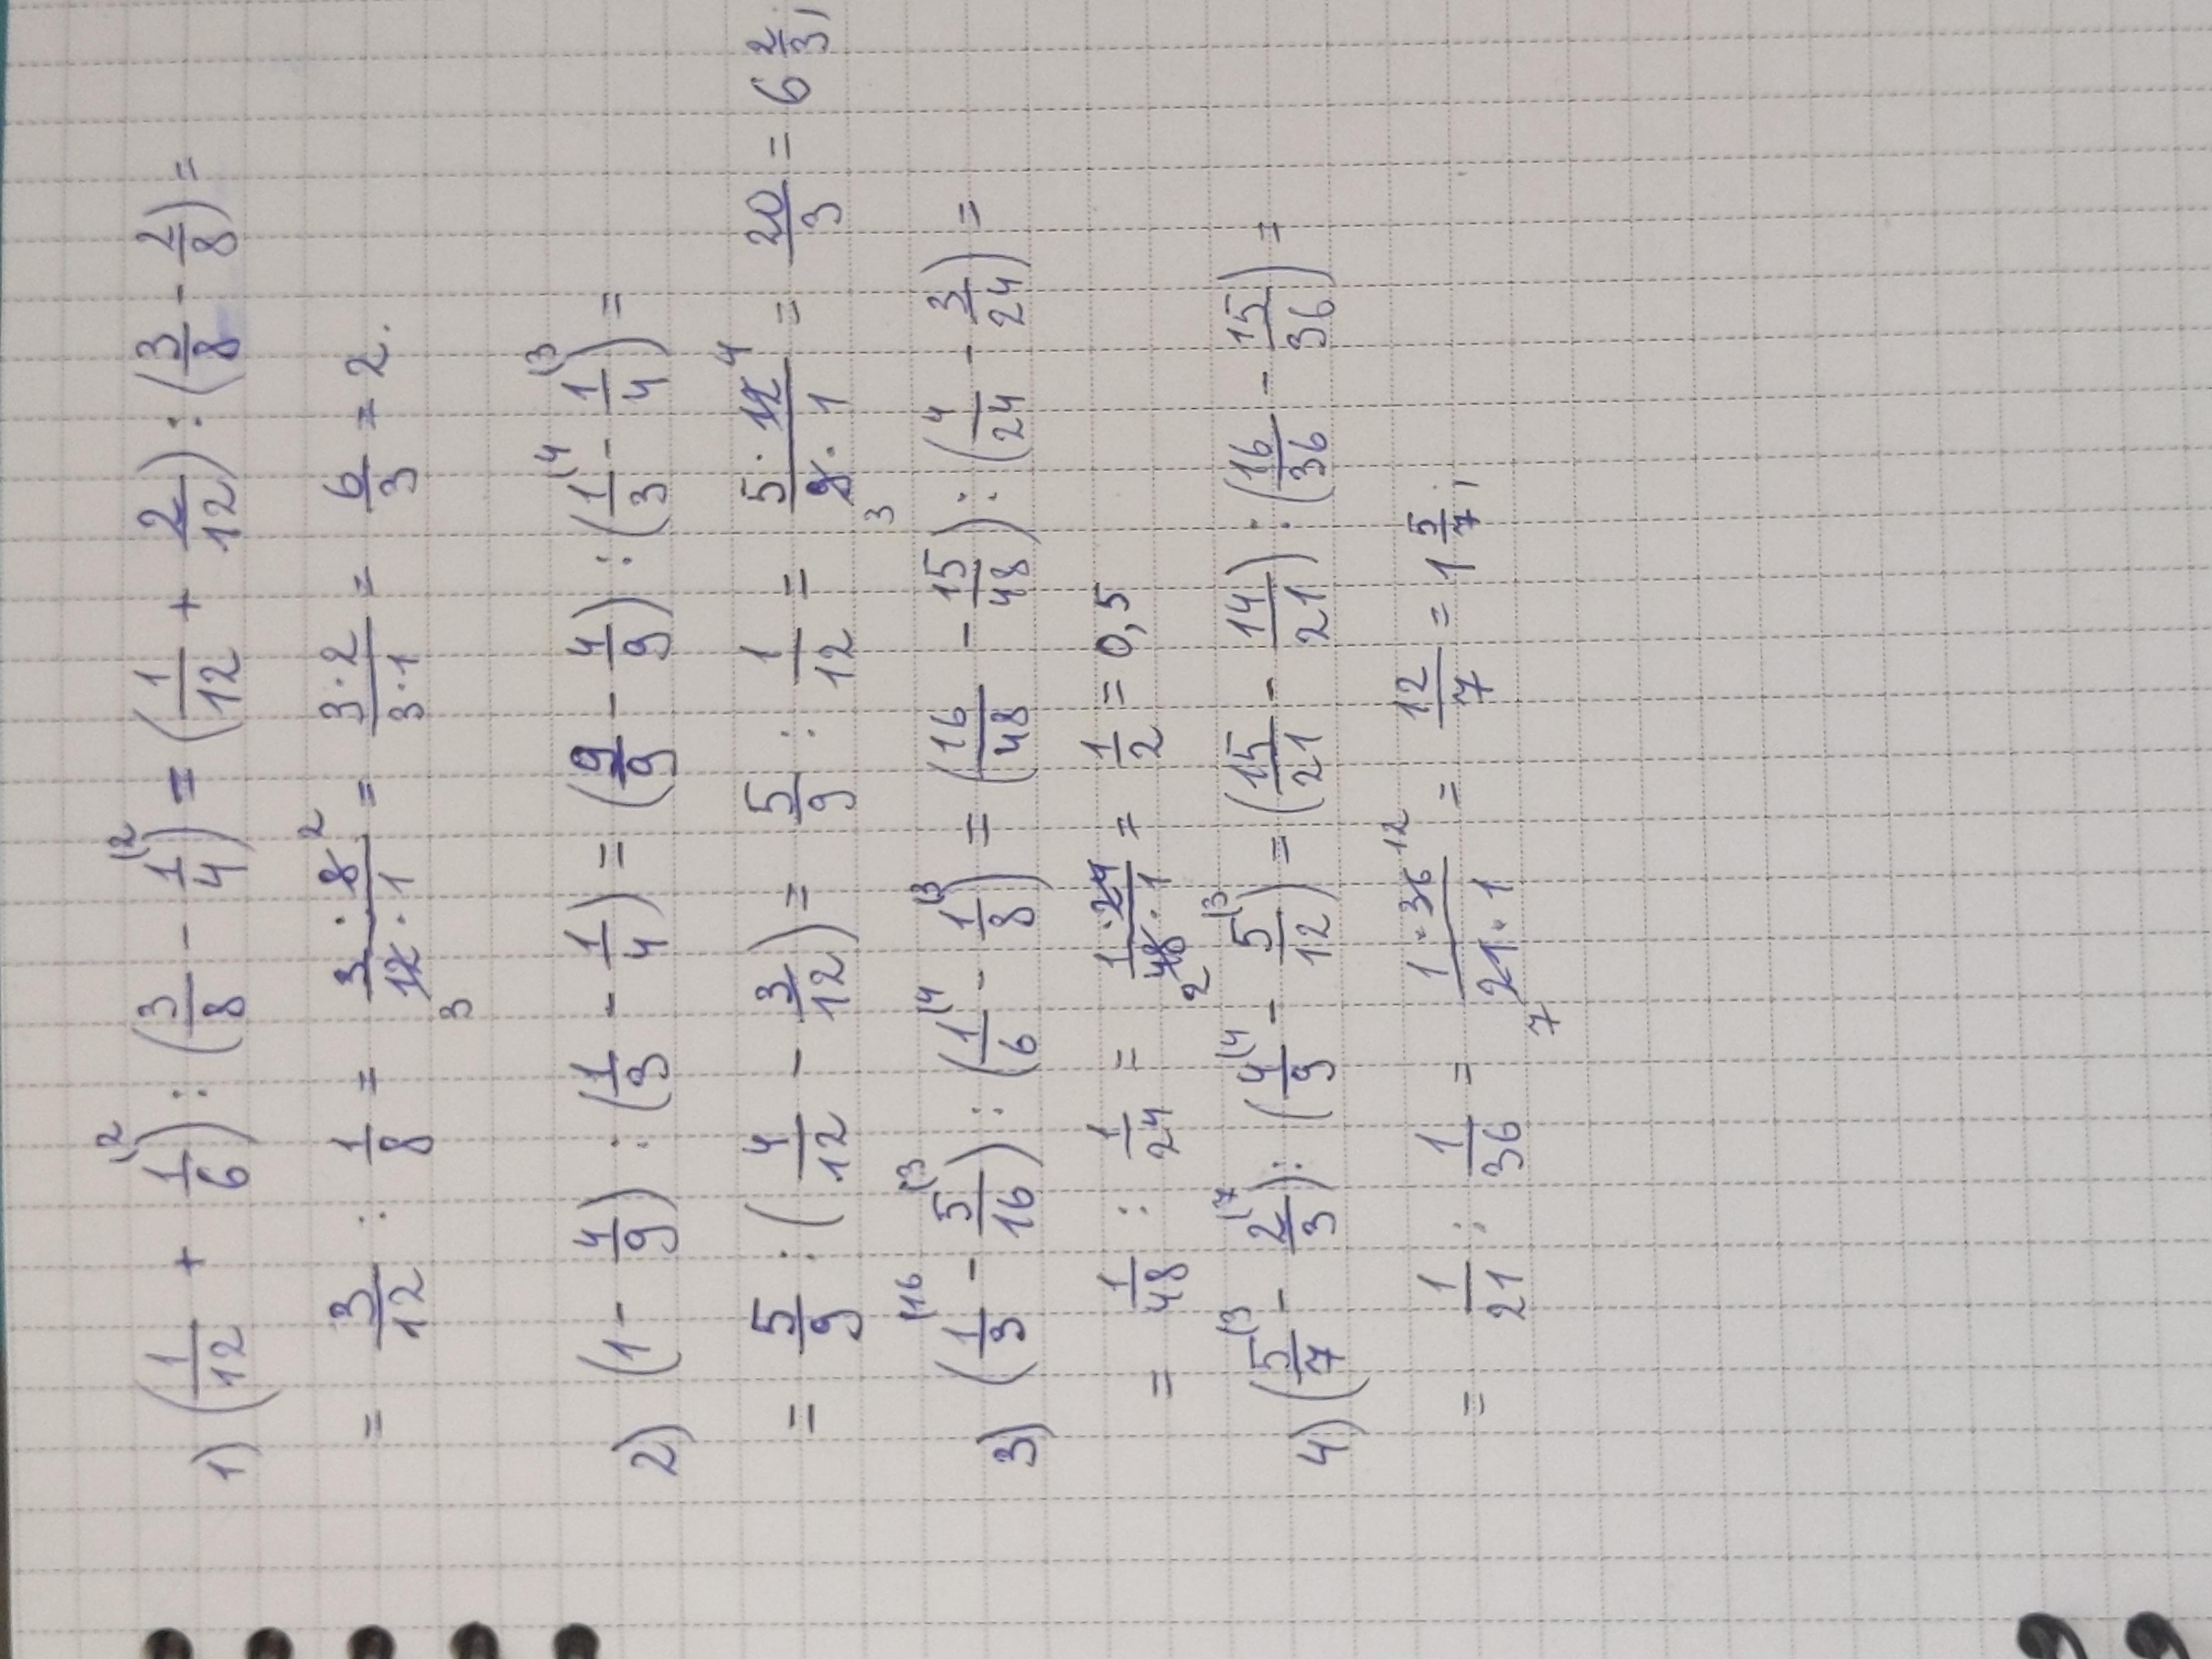 1) (1/12 + 1/6(2) : (3/8 - 1/4(2) = (1/12 + 2/12) : (3/8 - 2/8) =
= 3/12 : 1/8 = 3·8 2/12·1 3 = 3·2/3·1 = 6/3 = 2.
2) (1 - 4/9) : (1/3 - 1/4) = (9/9 - 4/9) : (1/3(4 - 1/4(3) =
= 5/9 : (4/12 - 3/12) = 5/9 : 1/12 = 5·12 4/9·1 3 = 20/3 = 6 2/3;
3) (1/3(16 - 5/16(3) : (1/6(4 - 1/8(3) = (16/48 - 15/48) : (4/24 - 3/24) =
= 1/48 : 1/24 = 1·24/2 48·1 = 1/2 = 0,5
4) (5/7(3 - 2/3(7) : (4/9(4 - 5/12(3) = (15/21 - 14/21) : (16/36 - 15/36) =
= 1/21 : 1/36 = 1·36 12/21·1 7 = 12/7 = 1 5/7;